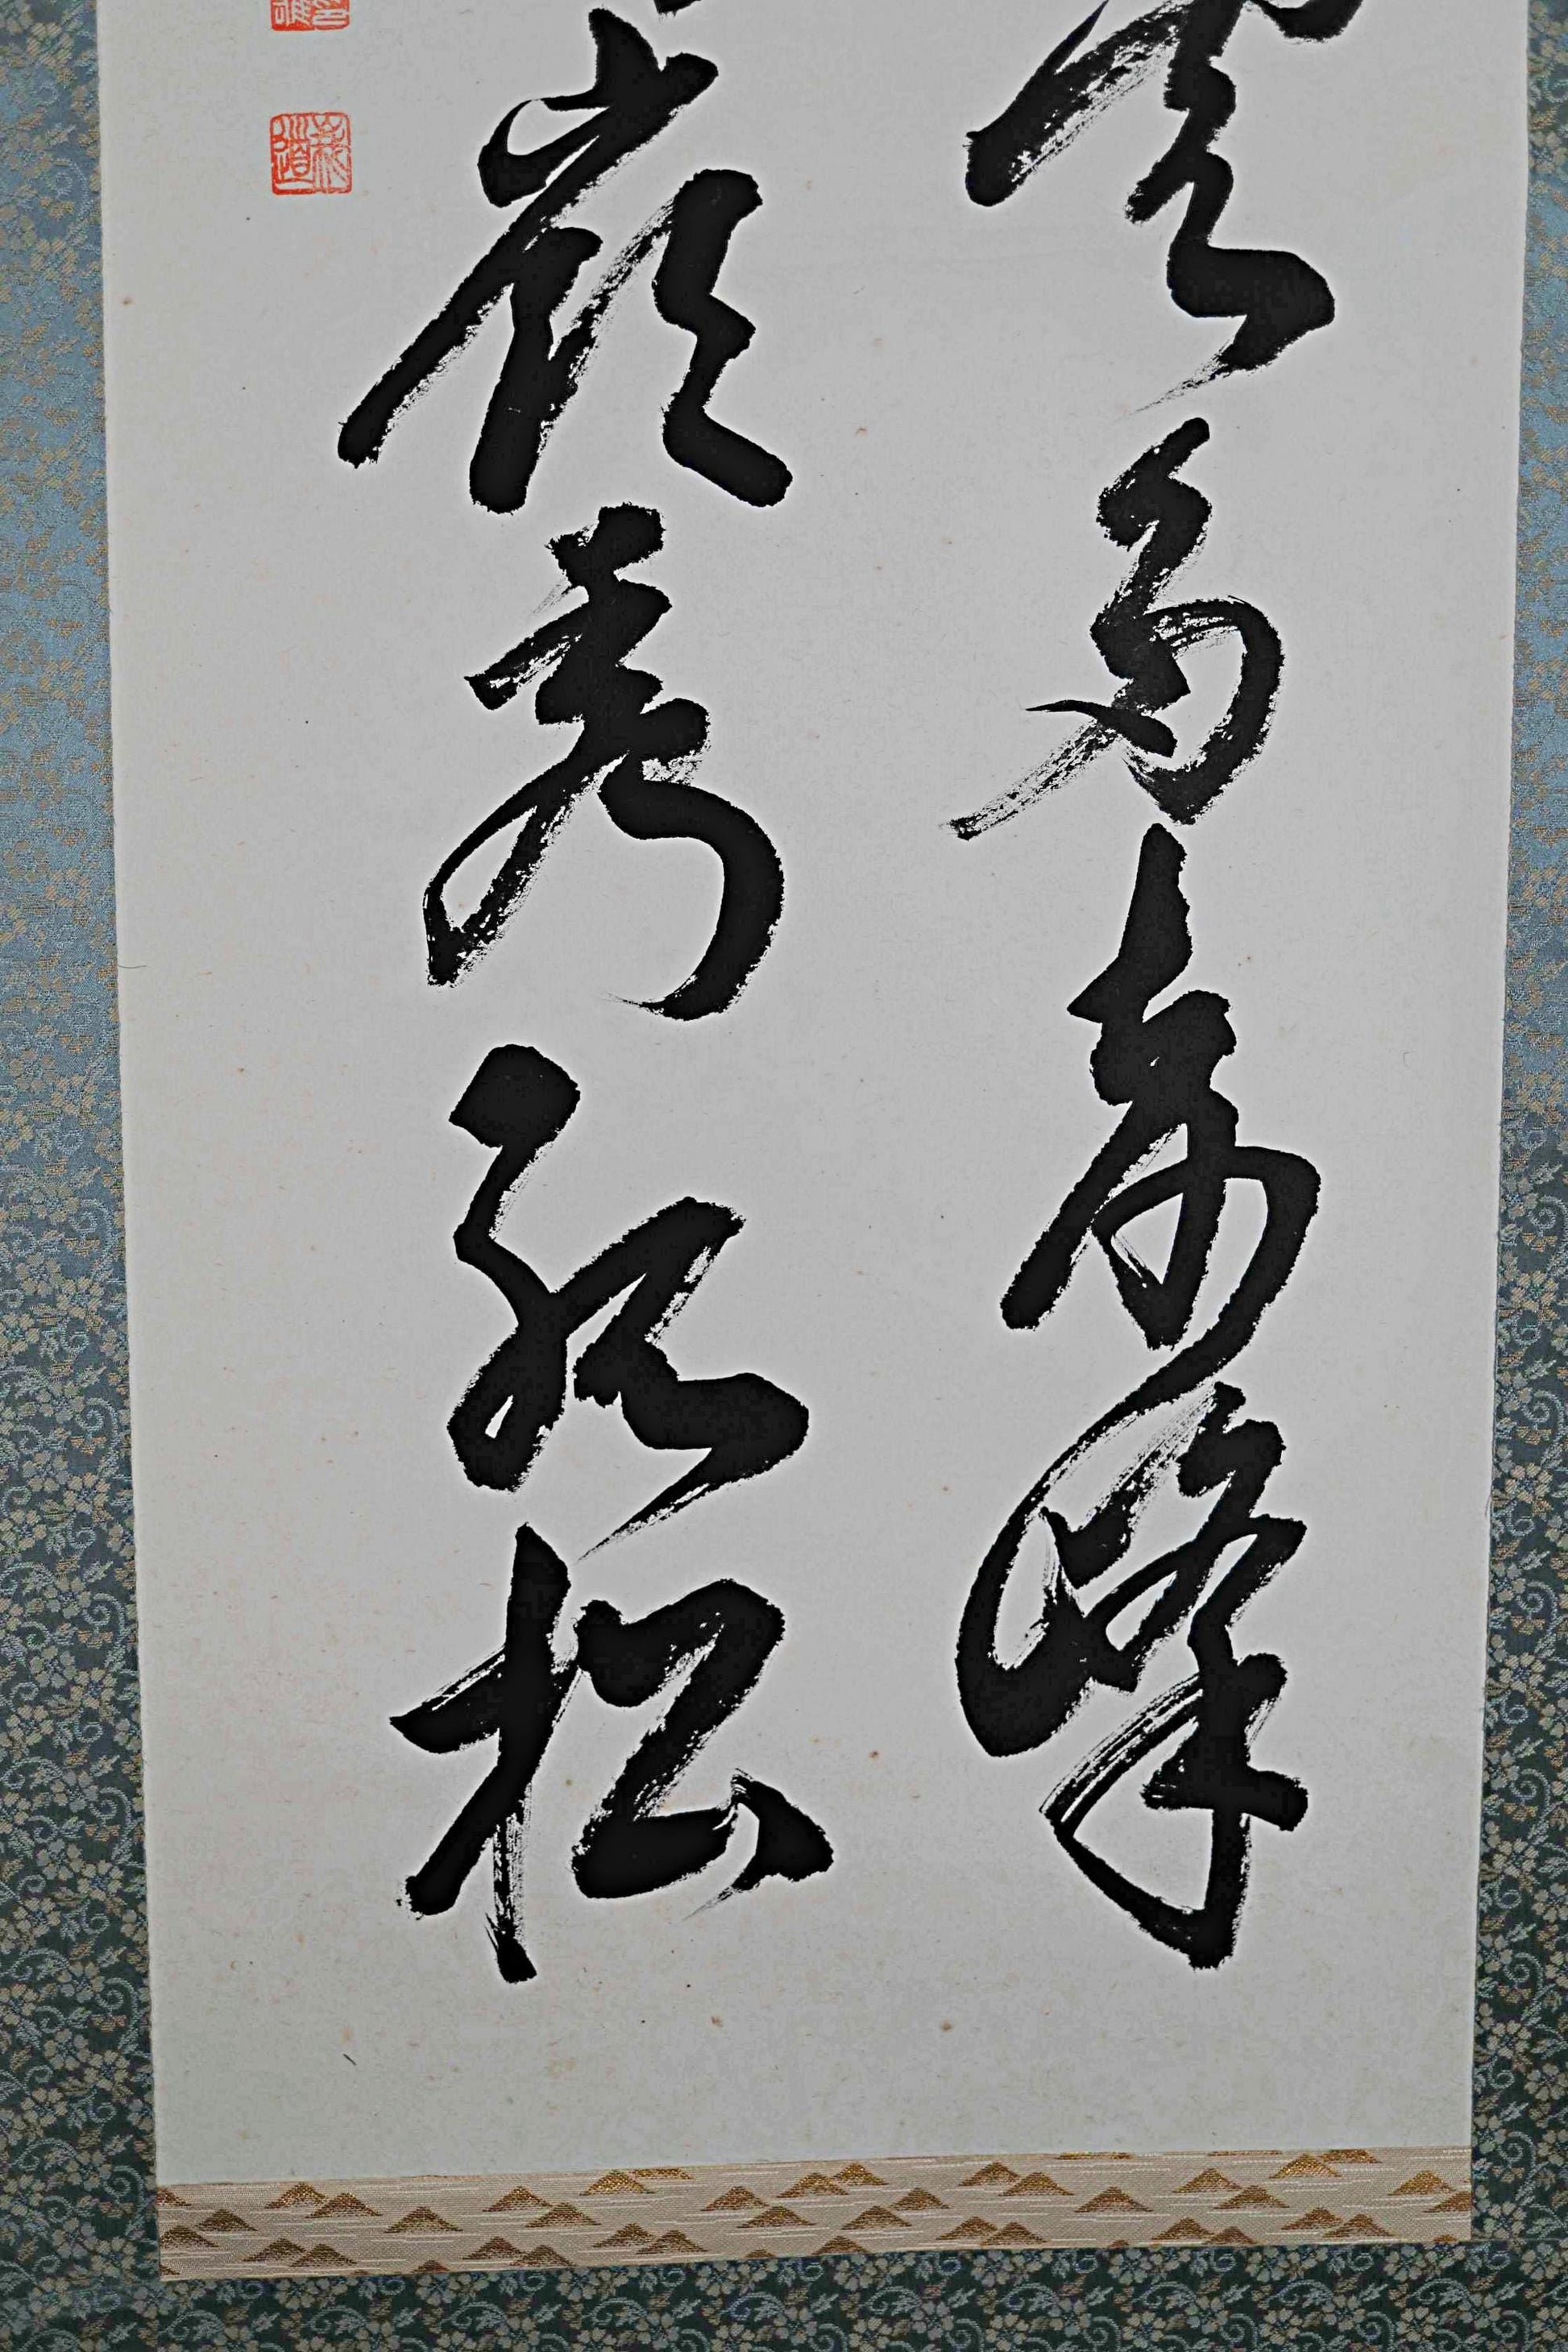 雲多奇峰
嶺秀孤松